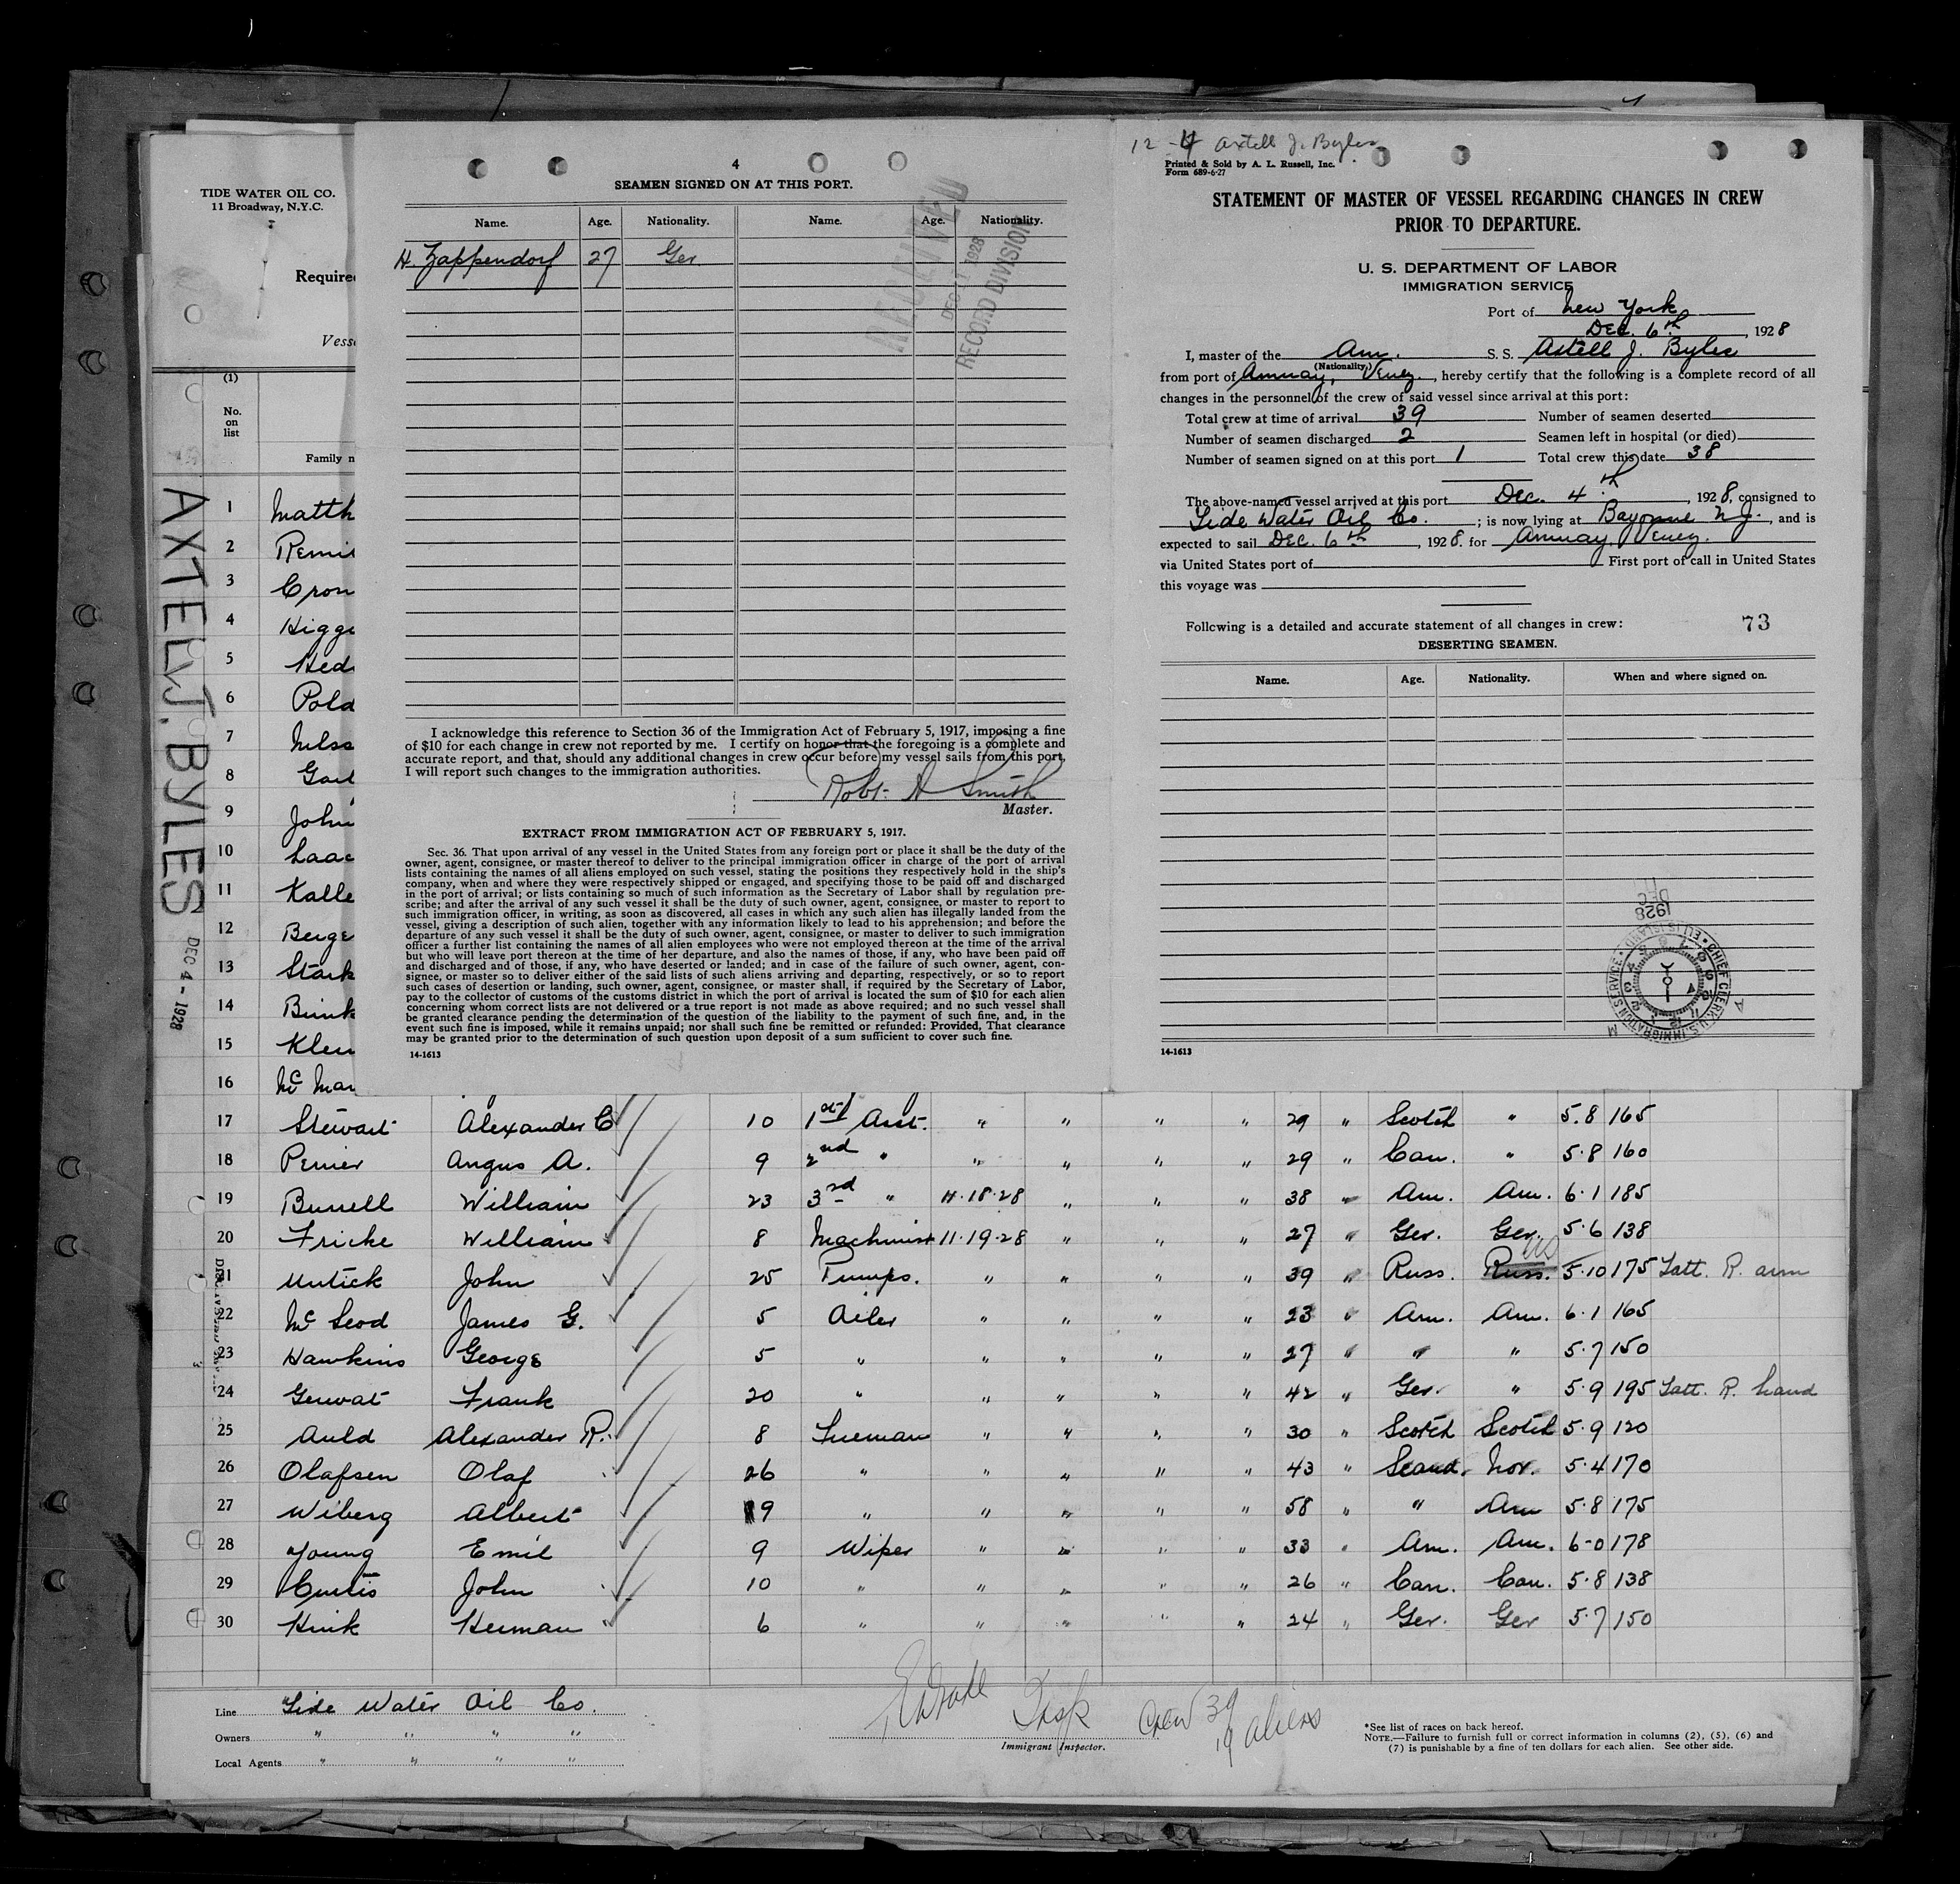 TIDE WATER OIL CO.
11 Broadway, N.Y.C.
Require
Vess
(1)
No.
on
list
Family n
AXTELL J. BYLES
DEC 4 - 1928
1 Matth
2 Remi
3 Cron
4 Higg
5 Hed
6 Pold
7 Nilss
8 Gail
9 John
10 Laac
11 Kalle
12 Berge
13 Stark
14 Bink
15 Klen
16 Mc Mar
4
SEAMEN SIGNED ON AT THIS PORT.
Name. Age. Nationality. Name. Age. Nationality.
H. Zappendorf 27 Ger
RECEIVED
DEC 1928
RECORD DIVISION
I acknowledge this reference to Section 36 of the Immigration Act of February 5, 1917, imposing a fine
of $10 for each change in crew not reported by me. I certify on honor that the foregoing is a complete and
accurate report, and that, should any additional changes in crew occur before my vessel sails from this port,
I will report such changes to the immigration authorities.
Robt. A Smith
Master.
EXTRACT FROM IMMIGRATION ACT OF FEBRUARY 5, 1917.
Sec. 36. That upon arrival of any vessel in the United States from any foreign port or place it shall be the duty of the
owner, agent, consignee, or master thereof to deliver to the principal immigration officer in charge of the port of arrival
lists containing the names of all aliens employed on such vessel, stating the positions they respectively hold in the ship's
company, when and where they were respectively shipped or engaged, and specifying those to be paid off and discharged
in the port of arrival; or lists containing so much of such information as the Secretary of Labor shall by regulation pre-
scribe; and after the arrival of any such vessel it shall be the duty of such owner, agent, consignee, or master to report to
such immigration officer, in writing, as soon as discovered, all cases in which any such alien has illegally landed from the
vessel, giving a description of such alien, together with any information likely to lead to his apprehension; and before the
departure of any such vessel it shall be the duty of such owner, agent, consignee, or master to deliver to such immigration
officer a further list containing the names of all alien employees who were not employed thereon at the time of the arrival
but who will leave port thereon at the time of her departure, and also the names of those, if any, who have been paid off
and discharged and of those, if any, who have deserted or landed; and in case of the failure of such owner, agent, con-
signee, or master so to deliver either of the said lists of such aliens arriving and departing, respectively, or so to report
such cases of desertion or landing, such owner, agent, consignee, or master shall, if required by the Secretary of Labor,
pay to the collector of customs of the customs district in which the port of arrival is located the sum of $10 for each alien
concerning whom correct lists are not delivered or a true report is not made as above required; and no such vessel shall
be granted clearance pending the determination of the question of the liability to the payment of such fine, and, in the
event such fine is imposed, while it remains unpaid; nor shall such fine be remitted or refunded: Provided, That clearance
may be granted prior to the determination of such question upon deposit of a sum sufficient to cover such fine.
14-1613
12-4 Axtell J. Byles
Printed & Sold by A. L. Russell, Inc.
Form 689-6-27
STATEMENT OF MASTER OF VESSEL REGARDING CHANGES IN CREW
PRIOR TO DEPARTURE.
U. S. DEPARTMENT OF LABOR
IMMIGRATION SERVICE
Port of New York
Dec. 6th, 1928
I, master of the Am. S. S. Axtell J. Byles
(Nationality)
from port of Amuay, Venez., hereby certify that the following is a complete record of all
changes in the personnel of the crew of said vessel since arrival at this port:
Total crew at time of arrival 39 Number of seamen deserted
Number of seamen discharged 2 Seamen left in hospital (or died)
Number of seamen signed on at this port 1 Total crew this date 38
The above-named vessel arrived at this port Dec. 4th, 1928, consigned to
Tide Water Oil Co.; is now lying at Bayonne N.J., and is
expected to sail Dec. 6th, 1928. for Amuay, Venez.
via United States port of First port of call in United States
this voyage was
Following is a detailed and accurate statement of all changes in crew: 73
DESERTING SEAMEN.
Name. Age. Nationality. When and where signed on.
DEC 11
1928
CHIEF CLERK U.S. IMMIGRATION SERVICE ELLIS ISLAND
14-1613
17 Stewart Alexander C 10 1st Asst. " " " " 29 " Scotch " 5.8 165
18 Perrier Angus A. 9 2nd " " " " " 29 " Can. " 5.8 160
19 Burrell William 23 3rd " 11.18.28 " " " 38 " Am. Am. 6.1 185
20 Fricke William 8 Machinist 11.19.28 " " " 27 " Ger. Ger. 5.6 138
21 Untick John 25 Pumps. " " " " 39 " Russ. Russ. US 5.10 175 Tatt. R. arm
22 Mc Leod James G. 5 Oiler " " " " 23 " Am. Am. 6.1 165
23 Hawkins George 5 " " " " " 27 " " " 5.7 150
24 Gerwat Frank 20 " " " " " 42 " Ger. " 5.9 195 Tatt. R. hand
25 Auld Alexander R. 8 Fireman " " " " 30 " Scotch Scotch 5.9 120
26 Olafsen Olaf 26 " " " " " 43 " Scand. Nor. 5.4 170
27 Wiberg Albert 19 " " " " " 58 " " Am 5.8 175
28 Young Emil 9 Wiper " " " " 33 " Am. Am. 6-0 178
29 Curtis John 10 " " " " " 26 " Can. Can. 5.8 138
30 Hink Herman 6 " " " " " 24 " Ger. Ger 5.7 150
Line Tide Water Oil Co.
Owners " " " "
Local Agents " " " "
Insp
Immigrant Inspector.
Crew 39
19 aliens
*See list of races on back hereof.
NOTE.—Failure to furnish full or correct information in columns (2), (5), (6) and
(7) is punishable by a fine of ten dollars for each alien. See other side.